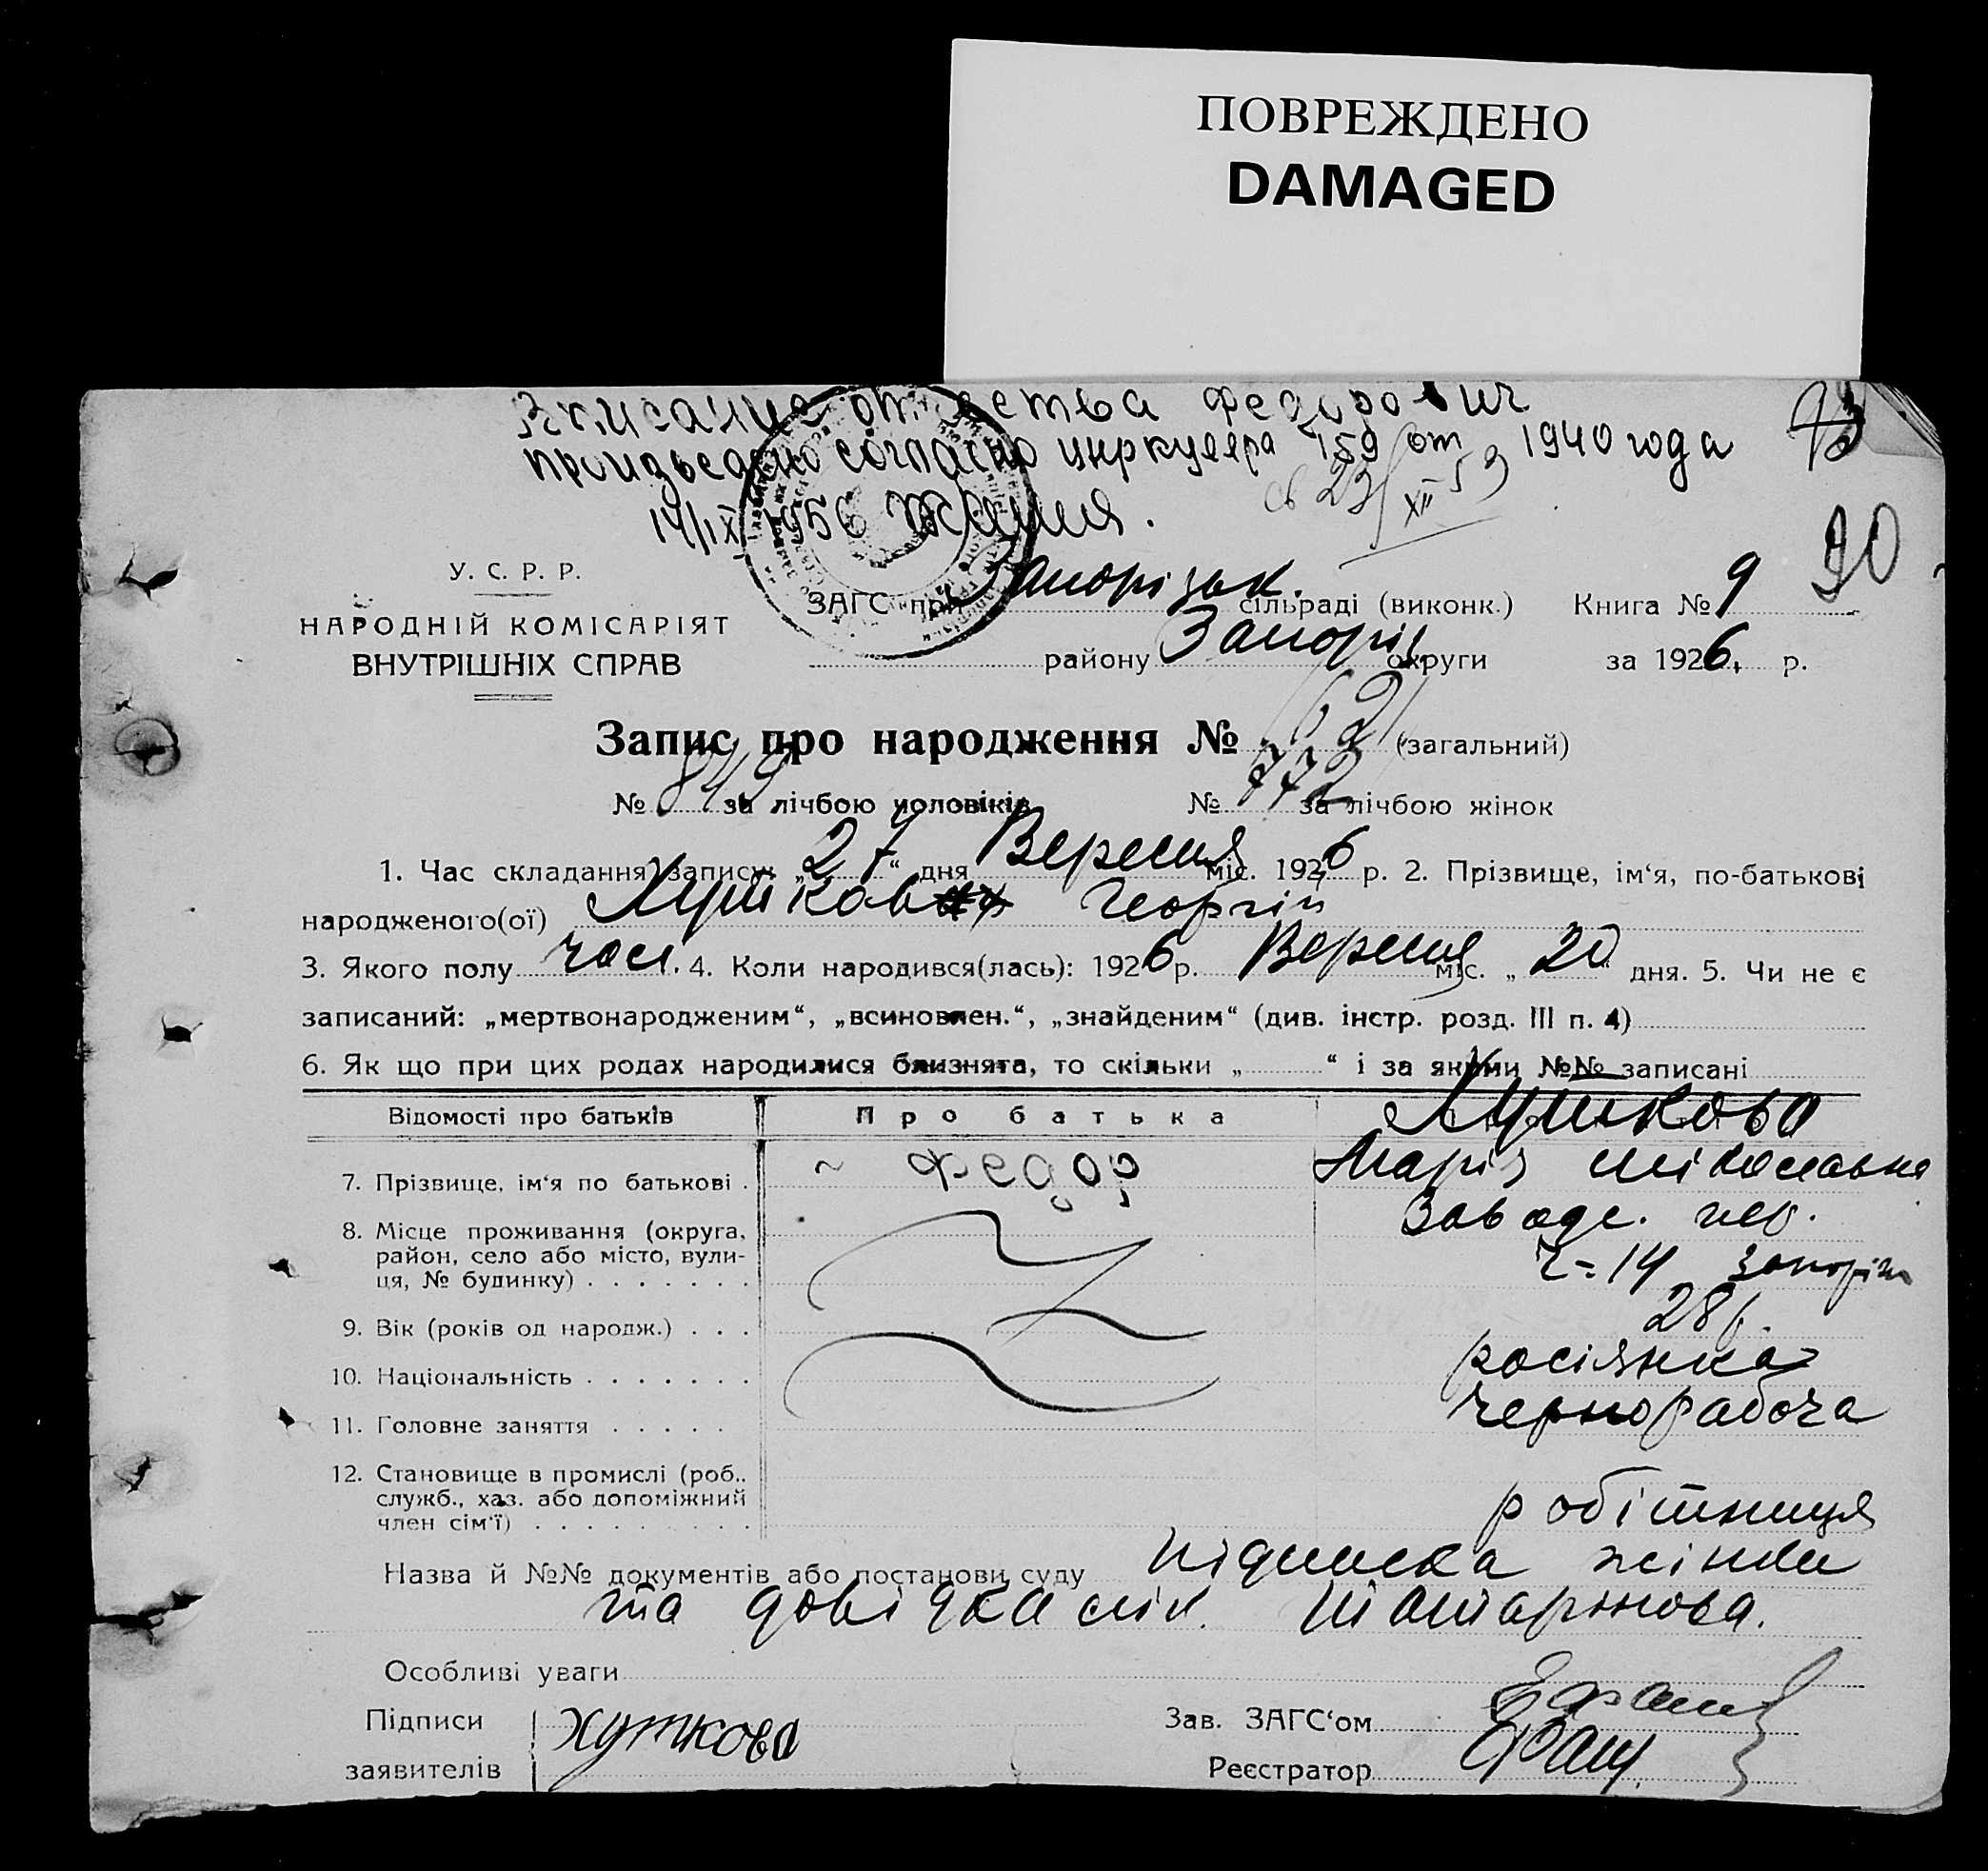 ПОВРЕЖДЕНО
DAMAGED
Записание отчества Федорович
произведено согласно циркуляра 159 от 1940 года
14/IX 1956
23/XII 53
90
У. С. Р. Р.
НАРОДНІЙ КОМІСАРІЯТ
ВНУТРІШНІХ СПРАВ
ЗАГС при Запорізьк. сільраді (виконк.) Книга № 9
району Запоріз. округи за 1926 р.
Запис про народження № (загальний)
№ 849 за лічбою чоловіків № 772 за лічбою жінок
1. Час складання запису: „27“ дня Вересня міс. 1926 р. 2. Прізвище, ім‘я, по-батькові
народженого(ої) Хутков Георгій
3. Якого полу чол. 4. Коли народився(лась): 1926 р. Вересня міс. „20“ дня. 5. Чи не є
записаний: „мертвонародженим“, „всиновлен.“, „знайденим“ (див. інстр. розд. III п. 4)
6. Як що при цих родах народилися близнята, то скільки „ “ і за якими №№ записані
Відомості про батьків Про батька
Хуткова
7. Прізвище, ім‘я по батькові . ~ Федор Марія Міколаевна
8. Місце проживання (округа, район, село або місто, вулиця, № будинку) . . . . . . . Заводс. пер.
ч=14 Запоріж
9. Вік (років од народж.) . . . 28 р.
10. Національність . . . . . . . росіянка
11. Головне заняття . . . . . чернорабоча
12. Становище в промислі (роб., служб., хаз. або допоміжний член сім‘ї) . . . . . . . . . робітниця
Назва й №№ документів або постанови суду підписка жінки
та довідка
Особливі уваги
Підписи Хуткова Зав. ЗАГС‘ом
заявителів Реєстратор